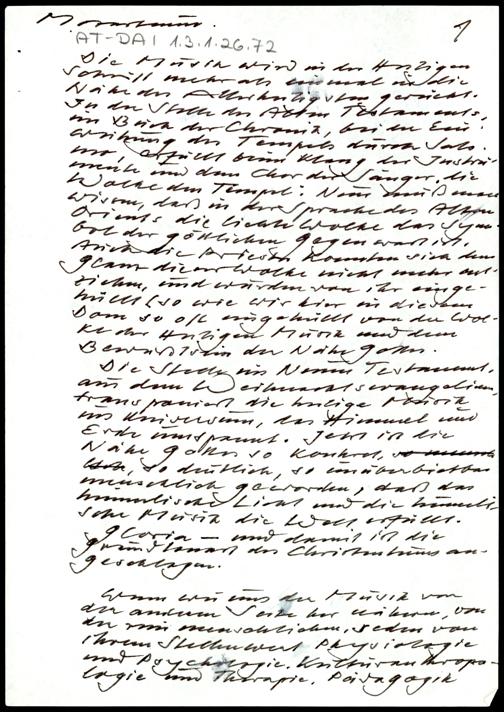 1
AT-DAI 1.3.1.26.72
Die Musik wird in der Heiligen
Schrift mehr als einmal in die
Nähe des Allerheiligsten gerückt.
In der Stelle des Alten Testaments,
im Buch der Chronik, bei der Ein-
weihung des Tempels durch Salo-
mo, erfüllt beim Klang der Instru-
mente und dem Chor der Sänger, die
Wolke den Tempel. Nun muß man
wissen, daß in der Sprache des Alten
Orients die lichte Wolke das Sym-
bol der göttlichen Gegenwart ist.
Auch die Priester konnten sich dem
Glanz dieser Wolke nicht mehr ent-
ziehen, und wurden von ihr einge-
hüllt (so wie wir hier in diesem
Dom so oft eingehüllt von der Wol-
ke der Heiligen Musik und dem
Bewußtsein der Nähe Gottes.
Die Stelle im Neuen Testament,
aus dem Weihnachtsevangelium,
transponiert die heilige Musik
ins Universum, das Himmel und
Erde umspannt. Jetzt ist die
Nähe Gottes so konkret,
so deutlich, so unüberbietbar
menschlich geworden, daß das
himmlische Licht und die himmli-
sche Musik die Welt erfüllt.
Gloria – und damit ist die
Grundtonart des Christentums an-
geschlagen.
Wenn wir uns der Musik von
der anderen Seite her nähern, von
der rein menschlichen, reden von
ihrem Stellenwert Physiologie
und Psychologie, Kulturanthropo-
logie und Therapie, Pädagogik